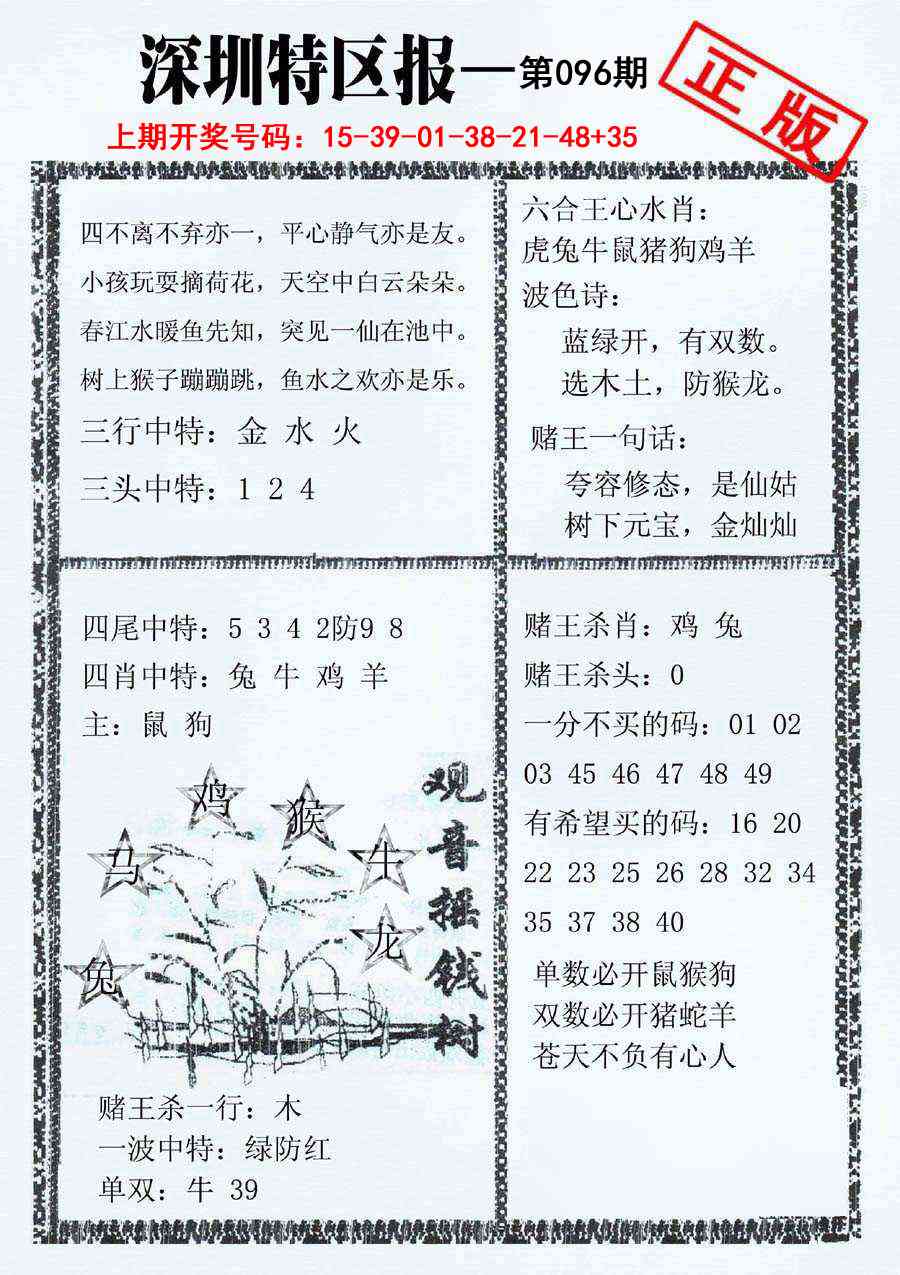 深圳特区报—第096期
正版
上期开奖号码：15-39-01-38-21-48+35
四不离不弃亦一，平心静气亦是友。
小孩玩耍摘荷花，天空中白云朵朵。
春江水暖鱼先知，突见一仙在池中。
树上猴子蹦蹦跳，鱼水之欢亦是乐。
三行中特：金 水 火
三头中特：1 2 4
六合王心水肖：
虎兔牛鼠猪狗鸡羊
波色诗：
蓝绿开，有双数。
选木土，防猴龙。
赌王一句话：
夸容修态，是仙姑
树下元宝，金灿灿
四尾中特：5 3 4 2防9 8
四肖中特：兔 牛 鸡 羊
主：鼠 狗
鸡
猴
马
牛
龙
兔
观音摇钱树
赌王杀一行：木
一波中特：绿防红
单双：牛 39
赌王杀肖：鸡 兔
赌王杀头：0
一分不买的码：01 02
03 45 46 47 48 49
有希望买的码：16 20
22 23 25 26 28 32 34
35 37 38 40
单数必开鼠猴狗
双数必开猪蛇羊
苍天不负有心人